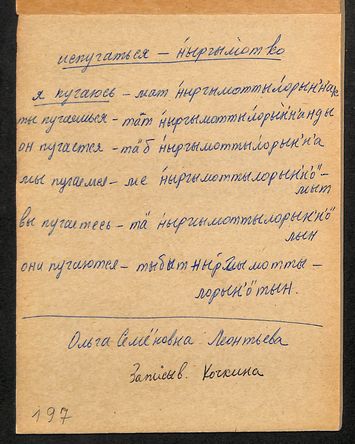 испугаться – ныргымотко
я пугаюсь – мат ныргымоттылорын'н'ак
ты пугаешься – тат ныргымоттылорын'н'анды
он пугается – таб ныргымоттылорын'н'а
мы пугаемся – ме ныргымоттылорын'н'ö-
мыт
вы пугаетесь – тä ныргымоттылорын'н'ö
лын
они пугаются – тыбыт ныргымотты-
лорын'ö тын.
Ольга Семёновна Леонтьева
Записыв. Кочкина
197